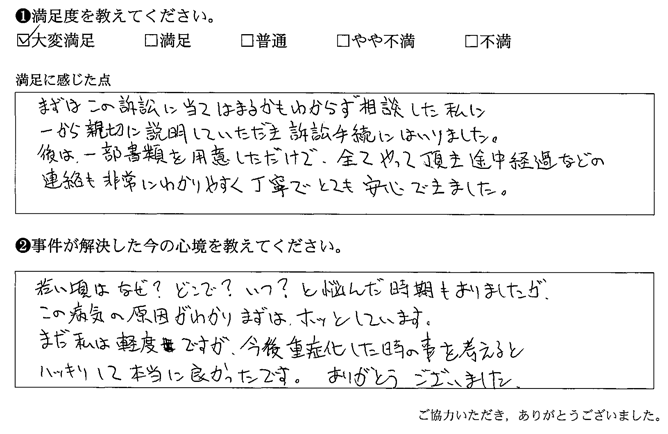 ❶満足度を教えてください。
☑大変満足 □満足 □普通 □やや不満 □不満
満足に感じた点
まずはこの訴訟に当てはまるかもわからず相談した私に
一から親切に説明していただき訴訟手続にはいりました。
後は、一部書類を用意しただけで、全てやって頂き途中経過などの
連絡も非常にわかりやすく丁寧でとても安心できました。
❷事件が解決した今の心境を教えてください。
若い頃はなぜ？どこで？いつ？と悩んだ時期もありましたが、
この病気の原因がわかりまずは、ホッとしています。
まだ私は軽度ですが、今後重症化した時の事を考えると
ハッキリして本当に良かったです。 ありがとうございました。
ご協力いただき，ありがとうございました。